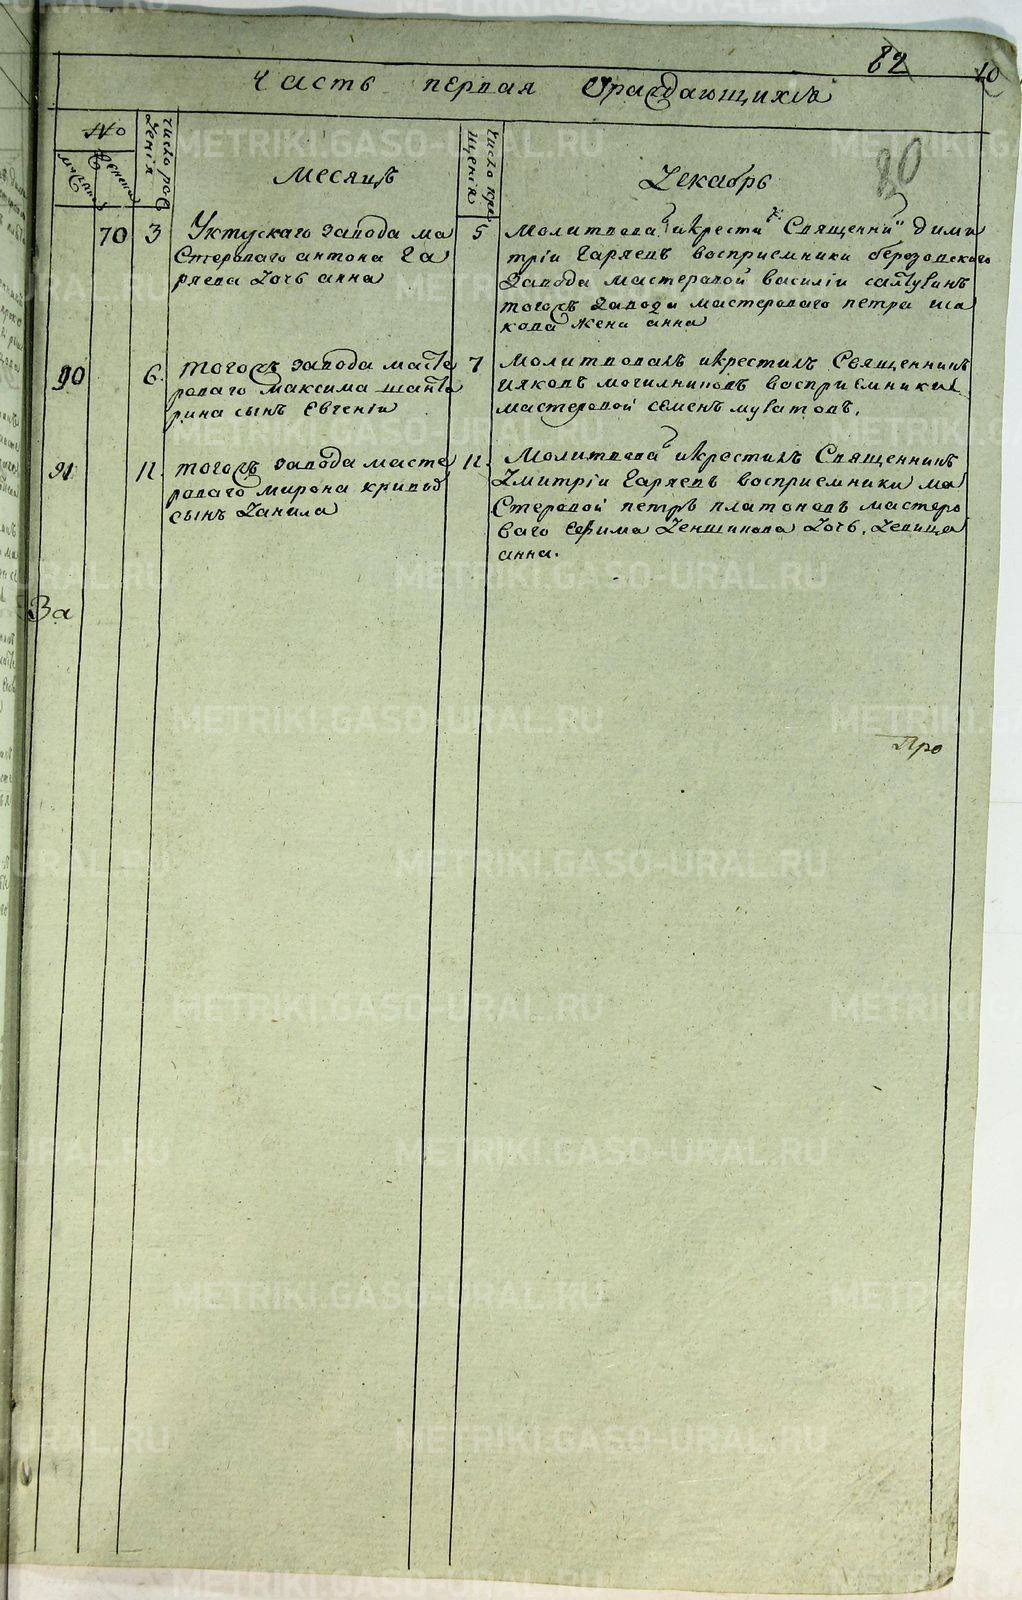 82
10
Часть первая Ораждающихся
№
мужеска
женска
число рож
денія
Месяцъ
число кре
щенія
Декабрь
80
70 3 Уктускаго завода ма
стероваго антона Га
ряева дочь анна
5 Молитвова и крести Священни Дими
трiи Гаряевъ восприемники березовского
завода мастеровой василiи
тогожъ завода мастероваго петра иса
кова жена анна
90 6. тогожъ завода масте
роваго максима
рина сынъ Евгенiи
7 Молитвовалъ икрестилъ Священникъ
Ияковъ могилниковъ восприемники
мастеровой семенъ муватовъ.
91 11. тогожъ завода масте
роваго мирона кривыд
сынъ Данила
12. Молитвова икрестилъ Священникъ
Дмитрiи Гаряевъ восприемники ма
стеровой петръ платоновъ мастеро
ваго ефима Деншикова дочь, девица
анна.
За
Про
METRIKI.GASO-URAL.RU